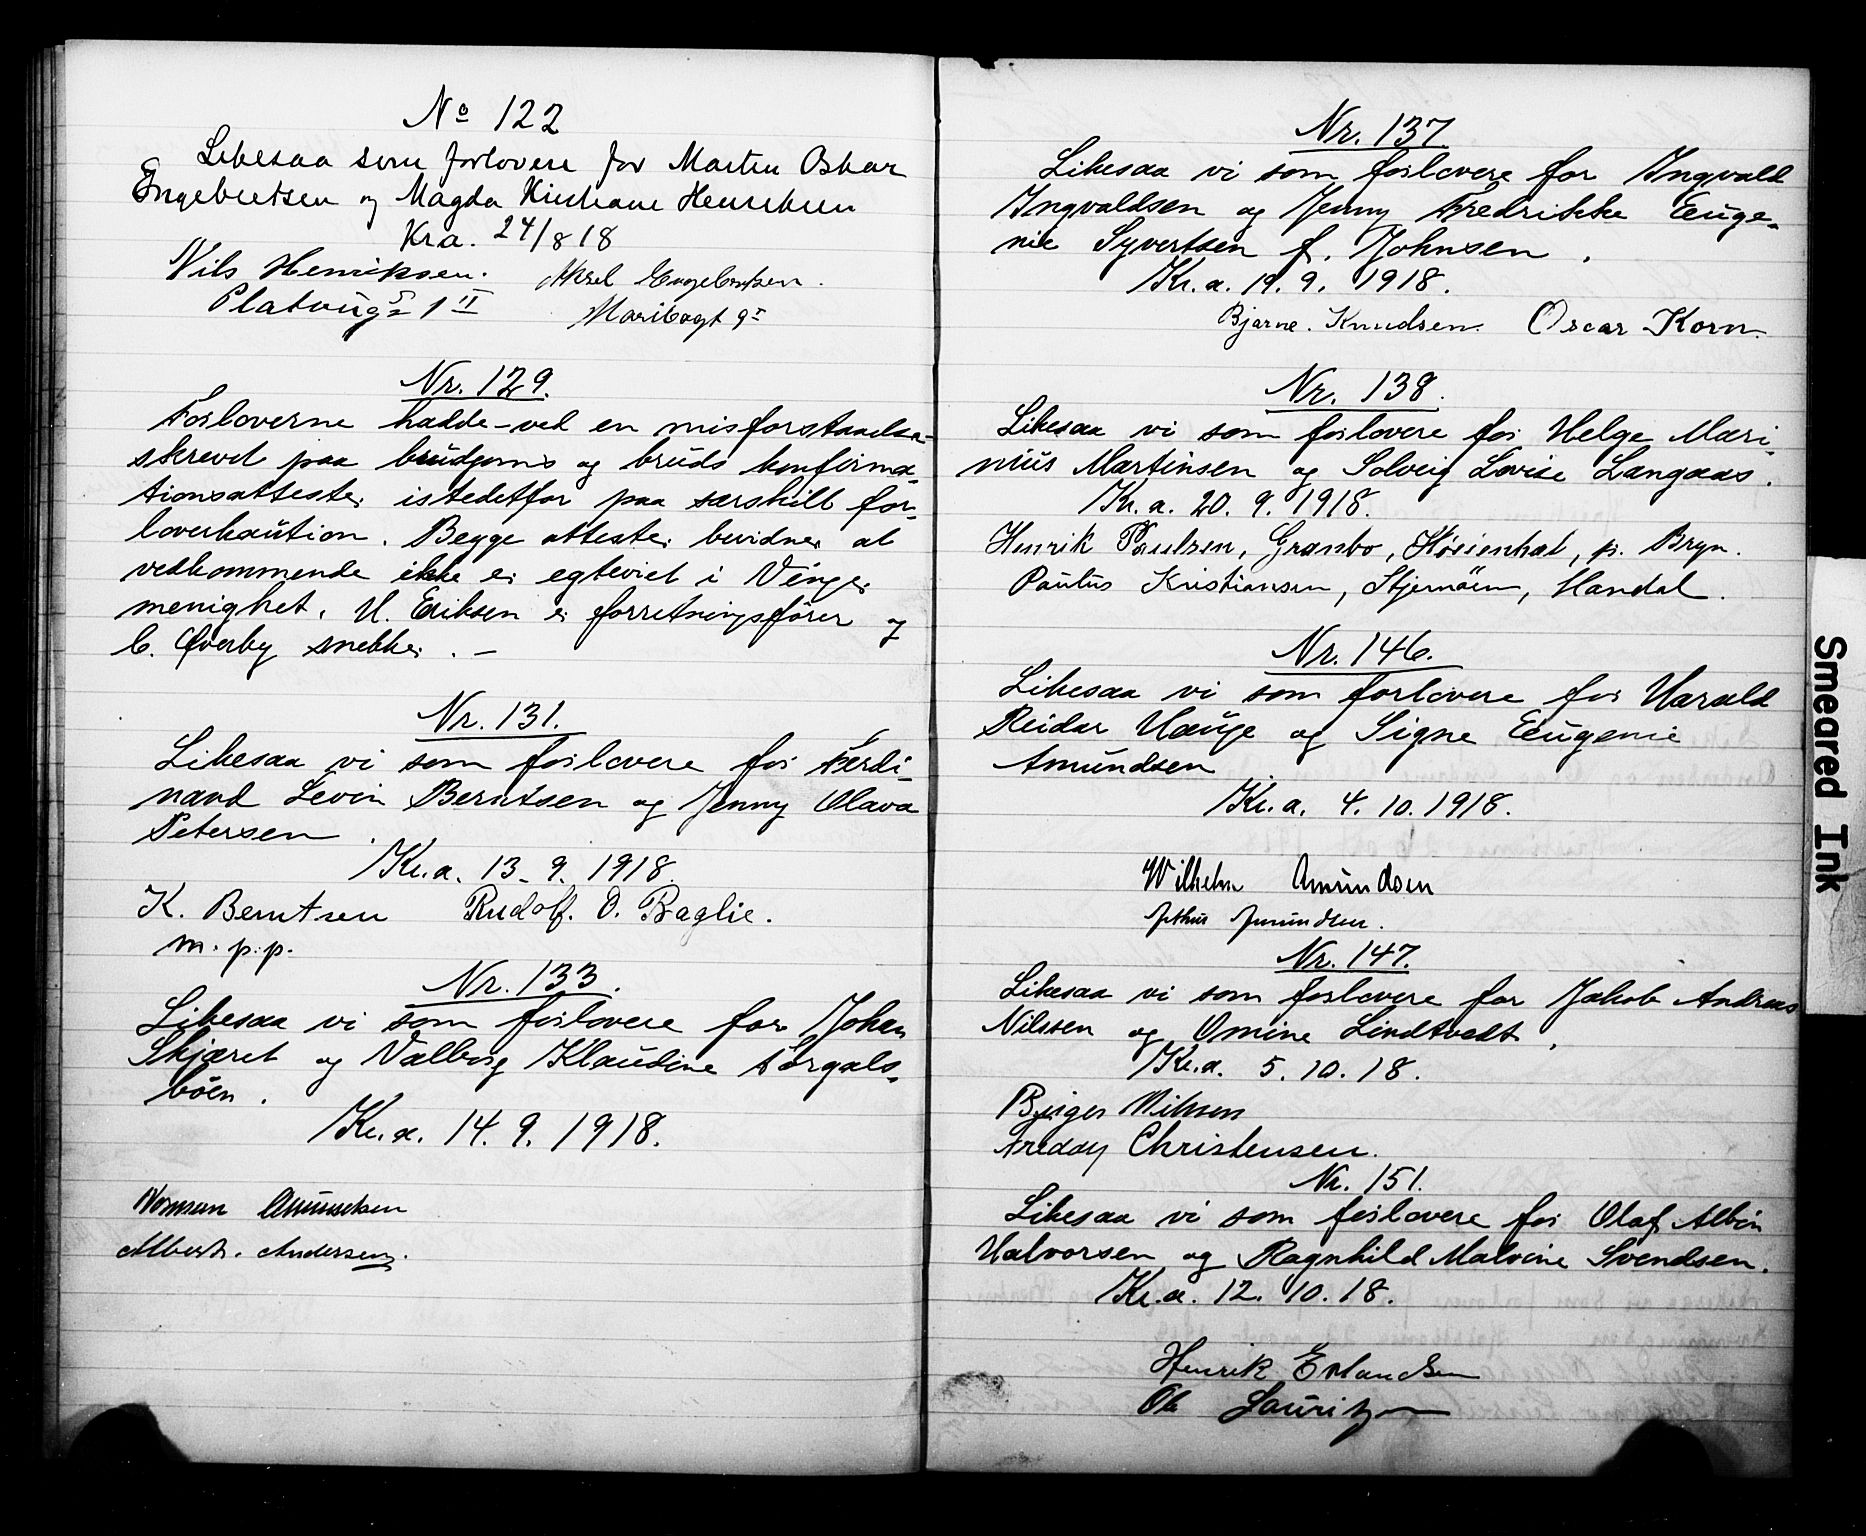 No 122
Likesaa som forlovere for Marten Oskar
Engebretsen og Magda Kirstiane Henriksen
Kra. 24/8 18
Nils Henriksen. Aksel Engebretsen.
Platougt 1 II Maribogt 9 I
Nr. 129.
Forloverne hadde - ved en misforstaaelse -
skrevet paa brudgoms og bruds konforma-
tionsattester istedetfor paa særskilt for-
loverkaution. Begge attester bevidner at
vedkommende ikke er egteviet i Vinger
menighet. H. Eriksen er forretningsfører og
C. Øverby snekker. -
Nr. 131.
Likesaa vi som forlovere for Ferdi-
nand Levin Berntsen og Jenny Olava
Petersen.
Kr.a. 13. 9. 1918.
K. Berntsen Rudolf. O. Baglie.
m. p. p.
Nr. 133.
Likesaa vi som forlovere for Johan
Skjæret og Valborg Klaudine
bøen.
Kr.a. 14. 9. 1918.
Amundsen
Albert. Andersen.
Nr. 137.
Likesaa vi som forlovere for Ingvald
Ingvaldsen og Jenny Fredrikke Euge-
nie Syvertsen f. Johnsen.
Kr.a. 19. 9. 1918.
Bjarne. Knudsen. Oscar Korn.
Nr. 138.
Likesaa vi som forlovere for Helge Mari-
nius Martinsen og Solveig Lovise Langaas.
Kr.a. 20. 9. 1918.
Henrik Paulsen, Granbo, p. Bryn.
Paulus Kristiansen, Handal.
Nr. 146.
Likesaa vi som forlovere for Harald
Reidar Hauge og Signe Eugenie
Amundsen
Kr.a. 4. 10. 1918.
Wilhelm Amundsen
Arthur Amundsen.
Nr. 147.
Likesaa vi som forlovere for Jakob Andreas
Nilssen og Omine Lindtvedt.
Kr.a. 5. 10. 18.
Birger Nilssen
Freddy Christensen.
Nr. 151.
Likesaa vi som forlovere for Olaf Albin
Halvorsen og Ragnhild Malvine Svendsen.
Kr.a. 12. 10. 18.
Henrik Erlandsen
Ole Lauritzen
Smeared Ink